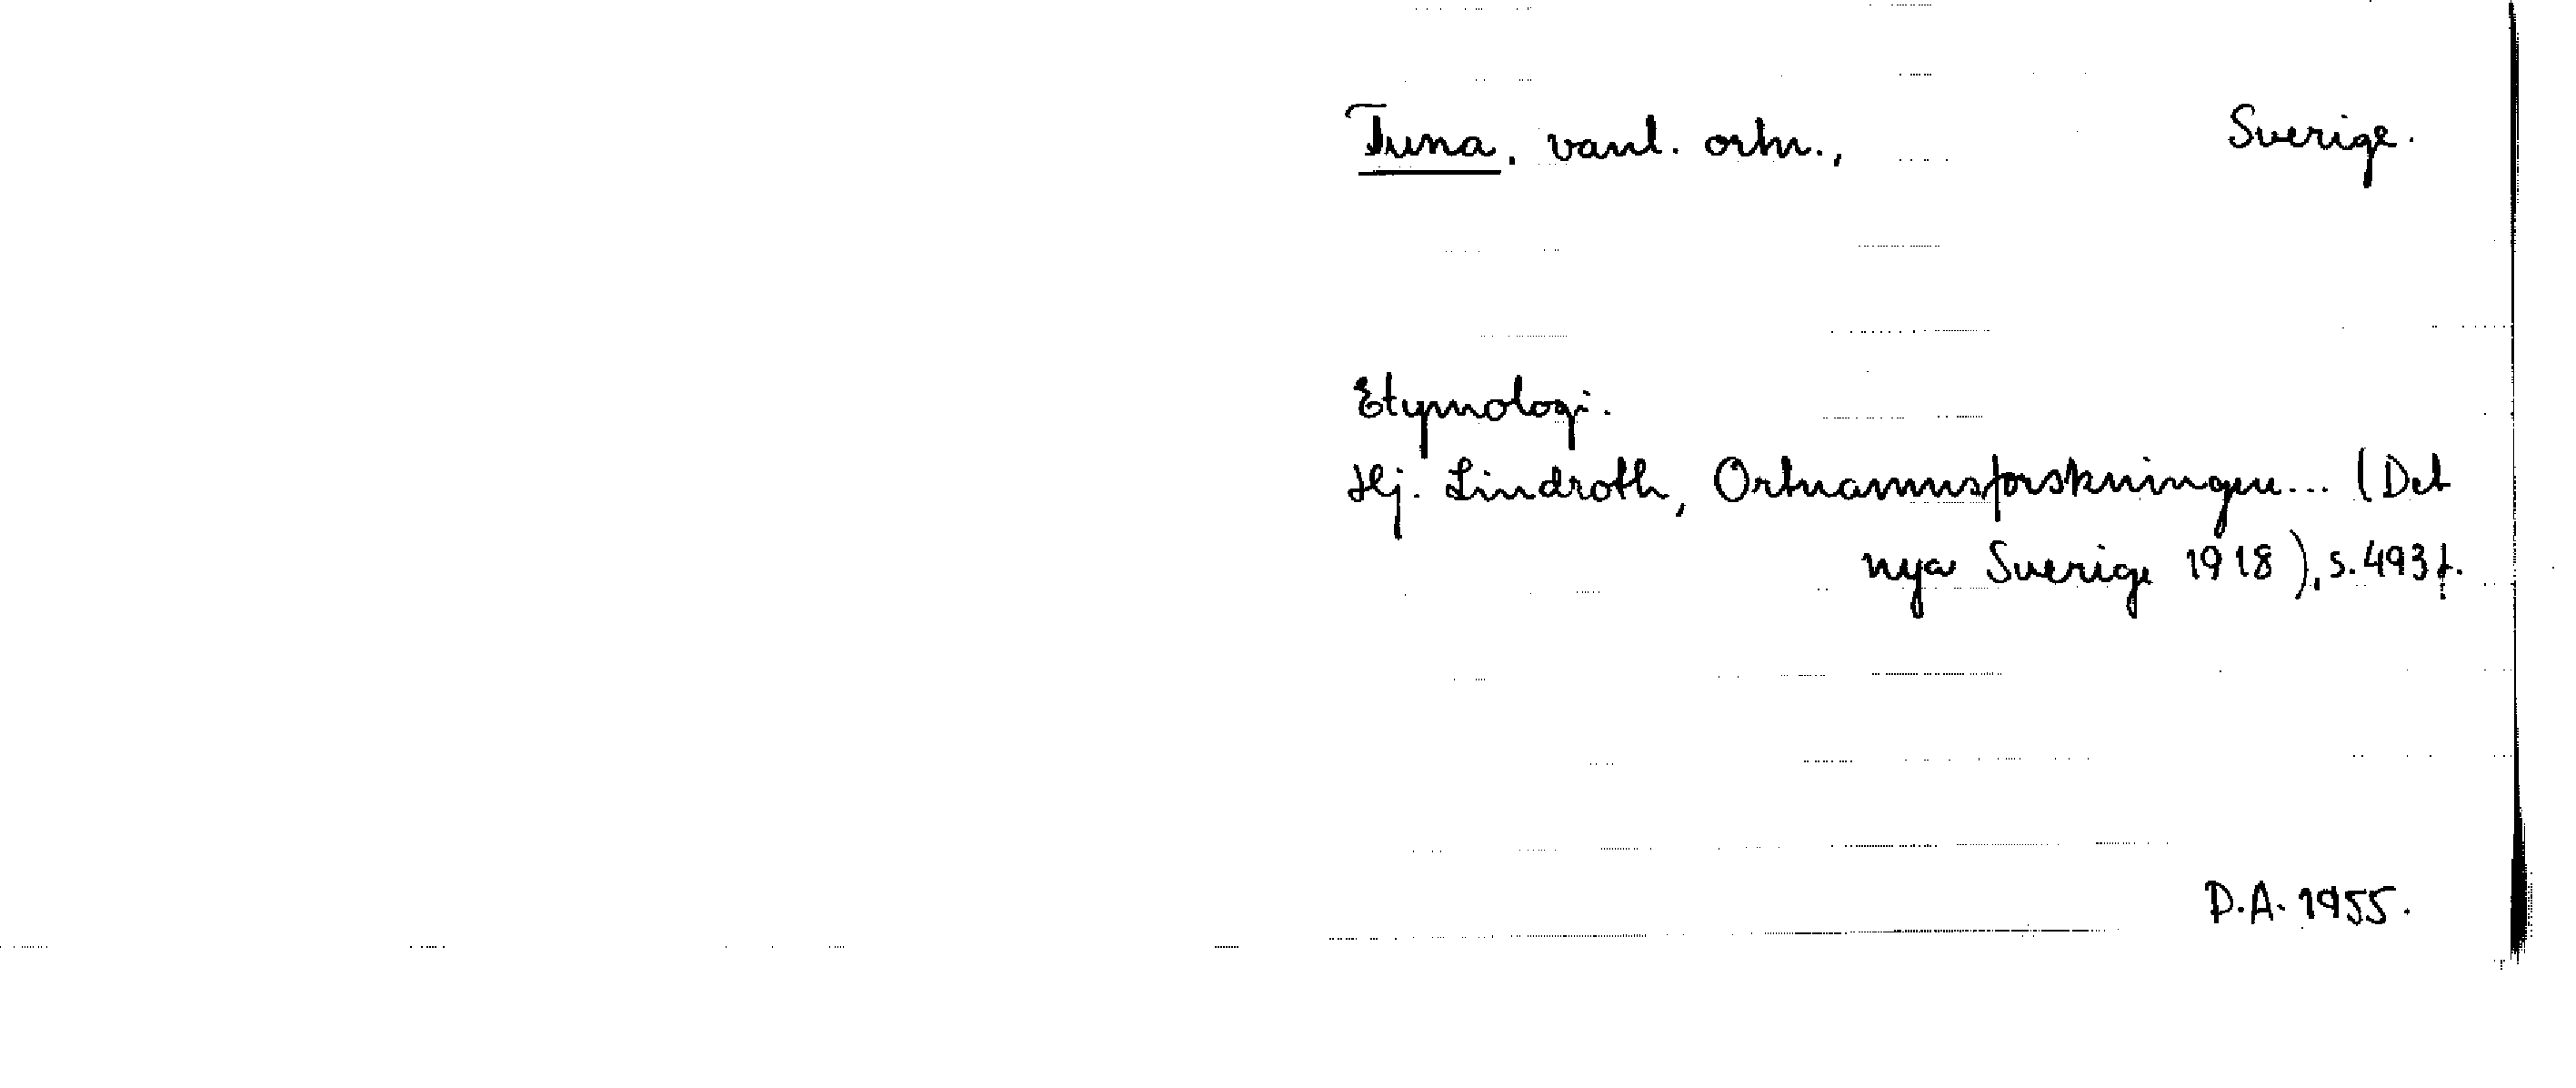 Tuna, vanl. ortn., Sverige.
Etymologi.
Hj. Lindroth, Ortnamnsforskningen... (Det
nya Sverige 1918), s. 493 f.
D.A. 1955.